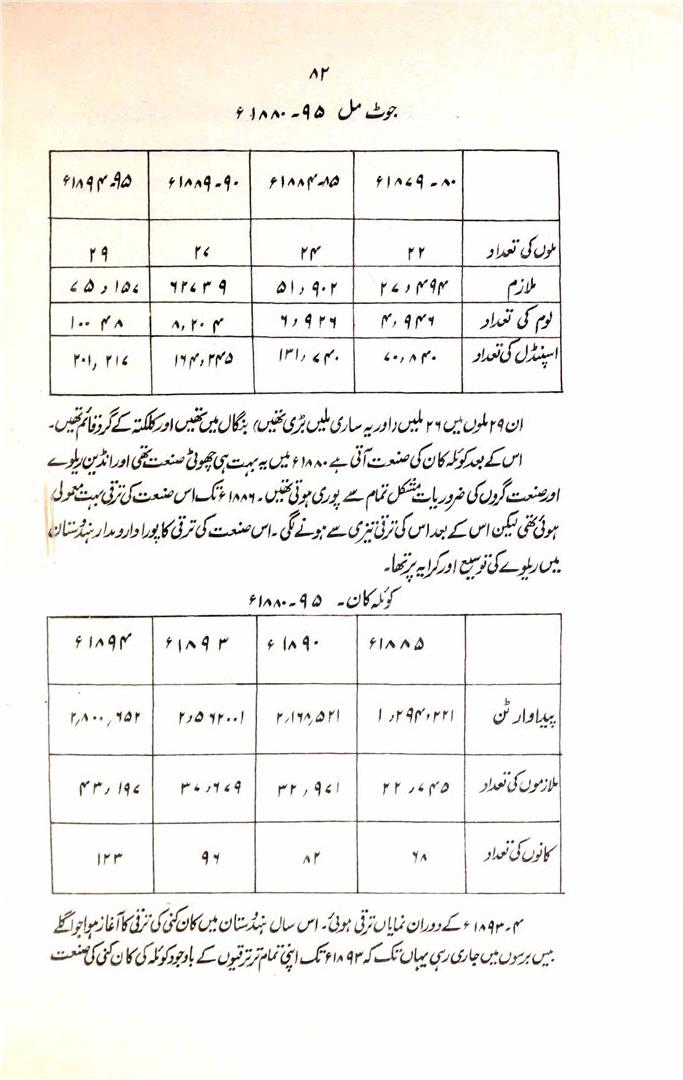 ۸۲
جوٹ مل ۹۵-۱۸۸۰ء
۸۰-۱۸۷۹ء ۸۵-۱۸۸۴ء ۹۰-۱۸۸۹ء ۹۵-۱۸۹۴ء
ملوں کی تعداد ۲۲ ۲۴ ۲۷ ۲۹
ملازم ۲۷٫۴۹۴ ۵۱٫۹۰۲ ۶۲۷۳۹ ۷۵٫۱۵۷
لوم کی تعداد ۴٫۹۴۶ ۶٫۹۲۶ ۸٫۲۰۴ ۱۰۰۴۸
اسپنڈل کی تعداد ۷۰٫۸۴۰ ۱۳۱٫۷۴۰ ۱۶۴٫۲۴۵ ۲۰۱٫۲۱۷
ان ۲۹ ملوں میں ۲۶ ملیں (اور یہ ساری ملیں بڑی تھیں) بنگال میں تھیں اور کلکتہ کے گرد قائم تھیں۔
اس کے بعد کوئلہ کان کی صنعت آتی ہے ۱۸۸۰ء میں یہ بہت ہی چھوٹی صنعت تھی اور انڈین ریلوے
اور صنعت گروں کی ضروریات مشکل تمام سے پوری ہوتی تھیں۔ ۱۸۸۶ء تک اس صنعت کی ترقی بہت معمولی
ہوئی تھی لیکن اس کے بعد اس کی ترقی تیزی سے ہونے لگی۔ اس صنعت کی ترقی کا پورا دارومدار ہندستان
میں ریلوے کی توسیع اور کرایہ پر تھا۔
کوئلہ کان۔ ۹۵-۱۸۸۰ء
۱۸۸۵ء ۱۸۹۰ء ۱۸۹۳ء ۱۸۹۴ء
پیداوار ٹن ۱٫۲۹۴٫۲۲۱ ۲٫۱۶۸٫۵۲۱ ۲٫۵۶۲۰۰۱ ۲٫۸۰۰٫۶۵۲
ملازموں کی تعداد ۲۲٫۷۴۵ ۳۲٫۹۷۱ ۳۷٫۶۷۹ ۴۳٫۱۹۷
کانوں کی تعداد ۶۸ ۸۲ ۹۶ ۱۲۳
۴-۱۸۹۳ء کے دوران نمایاں ترقی ہوئی۔ اس سال ہندستان میں کان کنی کی ترقی کا آغاز ہوا جو اگلے
بیس برسوں میں جاری رہی یہاں تک کہ ۱۸۹۳ء تک اپنی تمام تر ترقیوں کے باوجود کوئلہ کی کان کنی کی صنعت